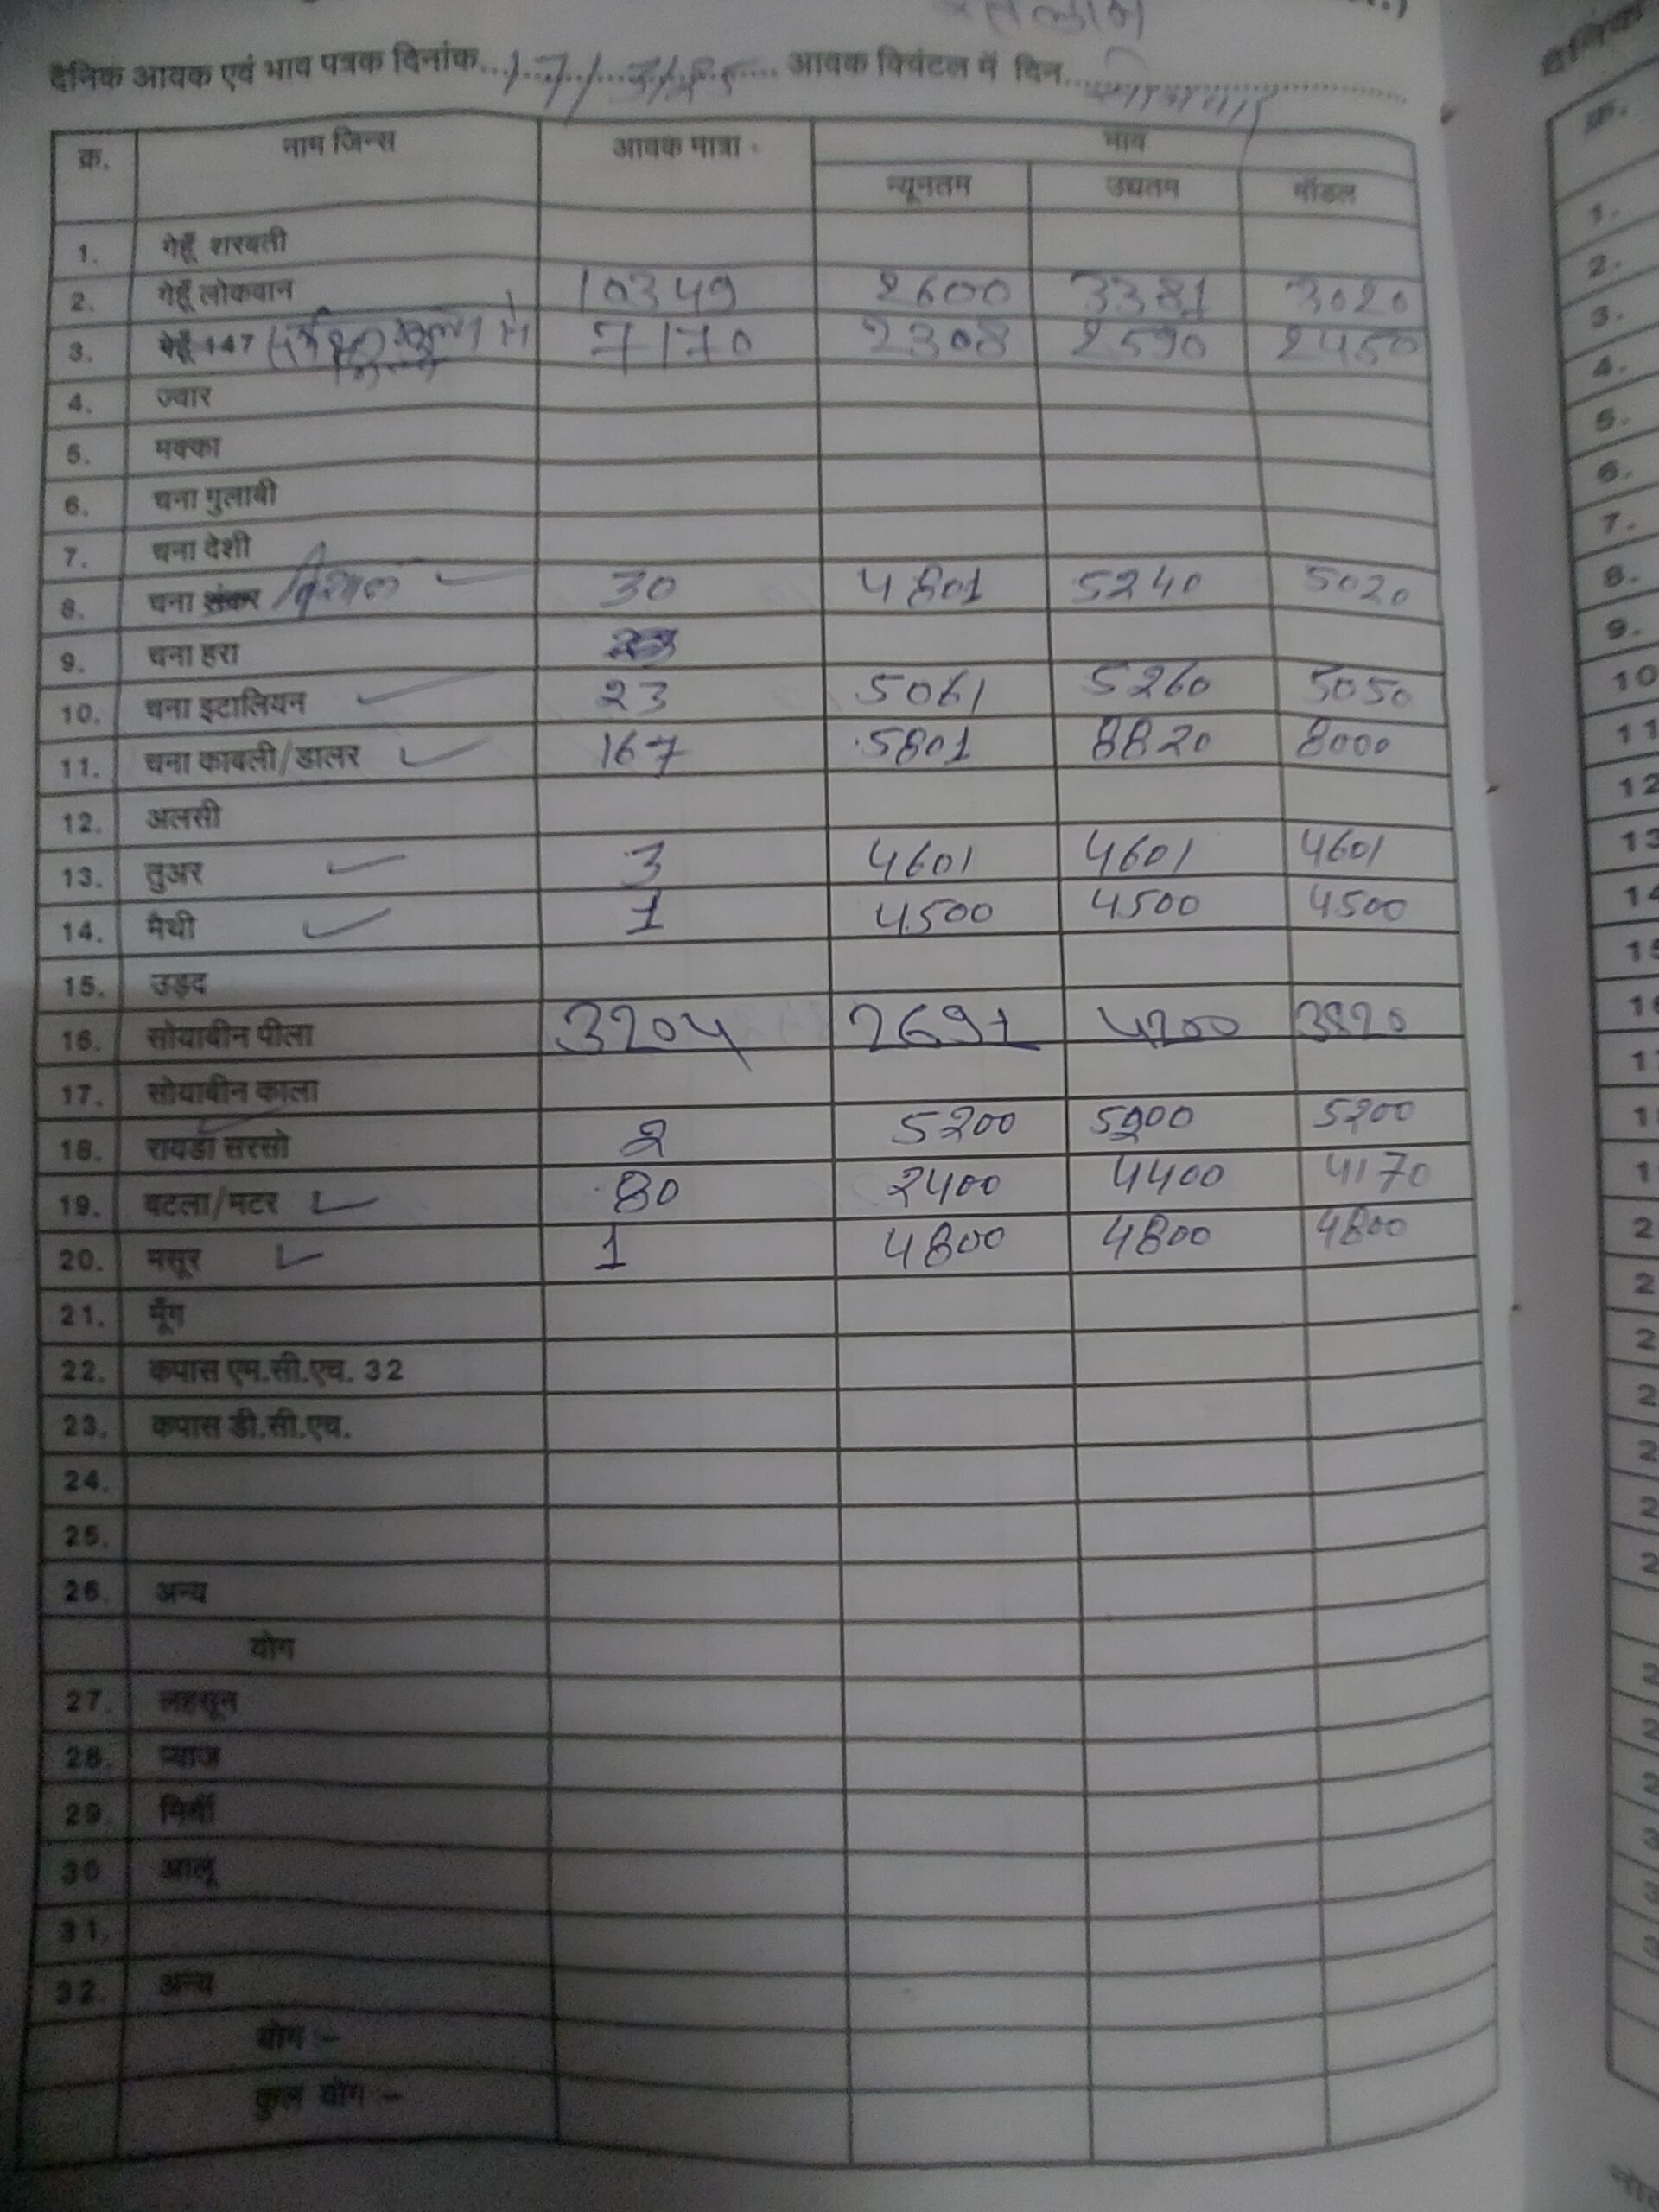 रतलाम
दैनिक आवक एवं भाव पत्रक दिनांक...17/3/25... आवक क्विंटल में दिन...सोमवार...
क्र. नाम जिन्स आवक मात्रा भाव
न्यूनतम उच्चतम मॉडल
1. गेहूँ शरबती
2. गेहूँ लोकवान 10349 2600 3381 3020
3. गेहूँ 147 7170 2308 2590 2450
4. ज्वार
5. मक्का
6. चना गुलाबी
7. चना देशी
8. चना शंकर विशाल 30 4801 5240 5020
9. चना हरा
10. चना इटालियन 23 5061 5260 5050
11. चना काबली/डालर 167 5801 8820 8000
12. अलसी
13. तुअर 3 4601 4601 4601
14. मैथी 1 4500 4500 4500
15. उड़द
16. सोयाबीन पीला 3204 2691 4200 3820
17. सोयाबीन काला
18. रायडा सरसो 2 5200 5200 5200
19. बटला/मटर 80 2400 4400 4170
20. मसूर 1 4800 4800 4800
21. मूँग
22. कपास एम.सी.एच. 32
23. कपास डी.सी.एच.
24.
25.
26. अन्य
योग
27. लहसून
28. प्याज
29. मिर्ची
30 आलू
31.
32. अन्य
योग :-
कुल योग :-